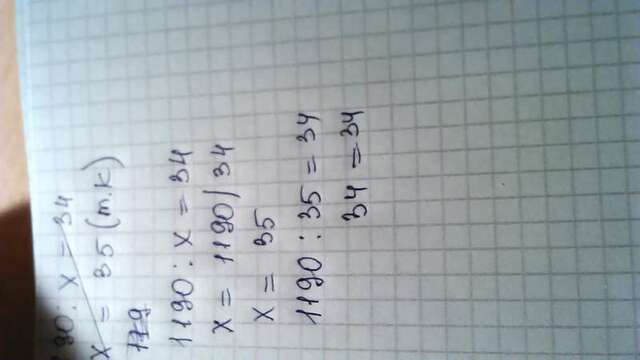 90: x = 34
x = 35 (m.k)
119
1190 : x = 34
x = 1190/34
x = 35
1190 : 35 = 34
34 = 34